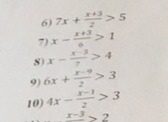 6) 7x + \frac{x+3}{2} > 5
7) x - \frac{x+3}{6} > 1
8) x - \frac{x-3}{7} > 4
9) 6x + \frac{x-9}{2} > 3
10) 4x - \frac{x-1}{2} > 3
\frac{x-3}{} > 2